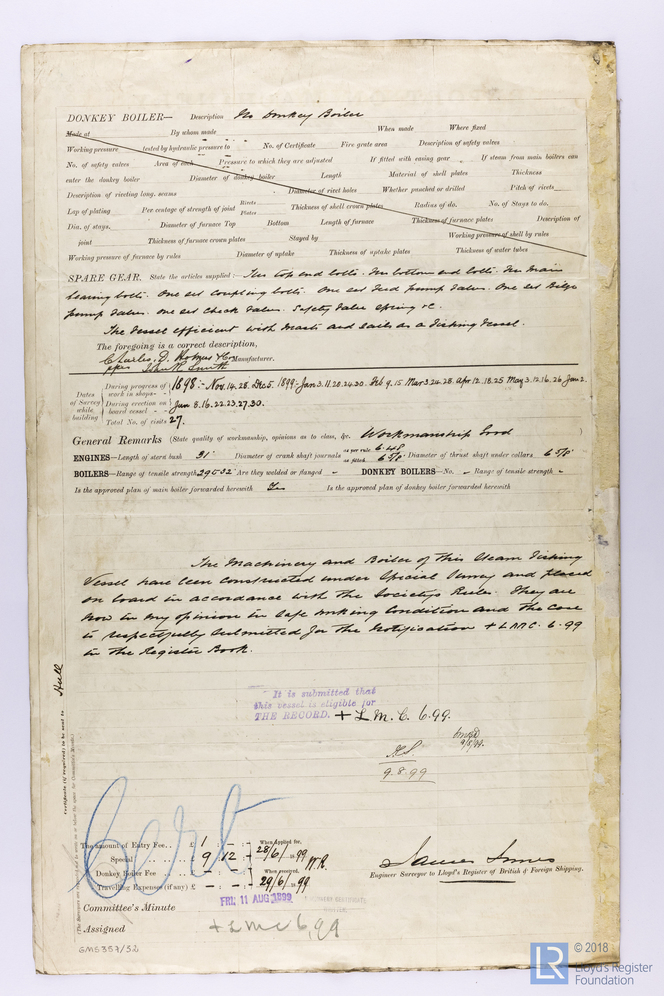 DONKEY BOILER— Description No Donkey Boiler
Made at By whom made When made Where fixed
Working pressure tested by hydraulic pressure to No. of Certificate Fire grate area Description of safety valves
No. of safety valves Area of each Pressure to which they are adjusted If fitted with easing gear If steam from main boilers can
enter the donkey boiler Diameter of donkey boiler Length Material of shell plates Thickness
Description of riveting long. seams Diameter of rivet holes Whether punched or drilled Pitch of rivets
Lap of plating Per centage of strength of joint Rivets Plates Thickness of shell crown plates Radius of do. No. of Stays to do.
Dia. of stays. Diameter of furnace Top Bottom Length of furnace Thickness of furnace plates Description of
joint Thickness of furnace crown plates Stayed by Working pressure of shell by rules
Working pressure of furnace by rules Diameter of uptake Thickness of uptake plates Thickness of water tubes
SPARE GEAR. State the articles supplied:— Two top end bolts. Two bottom end bolts. Two main
bearing bolts. One set coupling bolts. One set feed pump valves. One set Bilge
pump valves. One set check valves. Safety valve spring &c.
The vessel efficient with masts and sails as a fishing vessel.
The foregoing is a correct description,
Charles D. Holmes & Co Manufacturer.
John H. Smith
Dates of Survey while building
During progress of work in shops-- 1898:- Nov. 14. 28. Dec 5. 1899:- Jan 3. 11. 20. 24. 30. Feb 9. 15 Mar 3. 24. 28. Apr 12. 18. 25 May 3. 12. 16. 26 Jun 2.
During erection on board vessel--- Jun 8. 16. 22. 23. 27. 30.
Total No. of visits 27.
General Remarks (State quality of workmanship, opinions as to class, &c. Workmanship Good )
ENGINES—Length of stern bush 31" Diameter of crank shaft journals as per rule as fitted 6 5/8" Diameter of thrust shaft under collars 6 5/8"
BOILERS—Range of tensile strength 29 to 32 Are they welded or flanged - DONKEY BOILERS—No. - Range of tensile strength -
Is the approved plan of main boiler forwarded herewith Yes Is the approved plan of donkey boiler forwarded herewith
The Machinery and Boiler of this Steam Fishing
Vessel have been constructed under Special Survey and placed
on board in accordance with the Society's Rules. They are
now in my opinion in safe working condition and the case
is respectfully submitted for the Notification + LMC. 6.99
in the Register Book.
Hull
Certificate (if required) to be sent to
It is submitted that
this vessel is eligible for
THE RECORD. + L.M.C. 6.99.
9/8/99.
9.8.99
Cert
The amount of Entry Fee.. £ 1 : - : - When applied for,
Special . . . . £ 9 : 12 : - 28/6/1899 W.R.
Donkey Boiler Fee . . . £ - : - : - When received,
Travelling Expenses (if any) £ - : - : - 29/6/1899
James Innes
Engineer Surveyor to Lloyd's Register of British & Foreign Shipping.
Committee's Minute FRI. 11 AUG 1899
Assigned + LMC 6.99
GMS357/32
LR © 2018
Lloyd's Register
Foundation